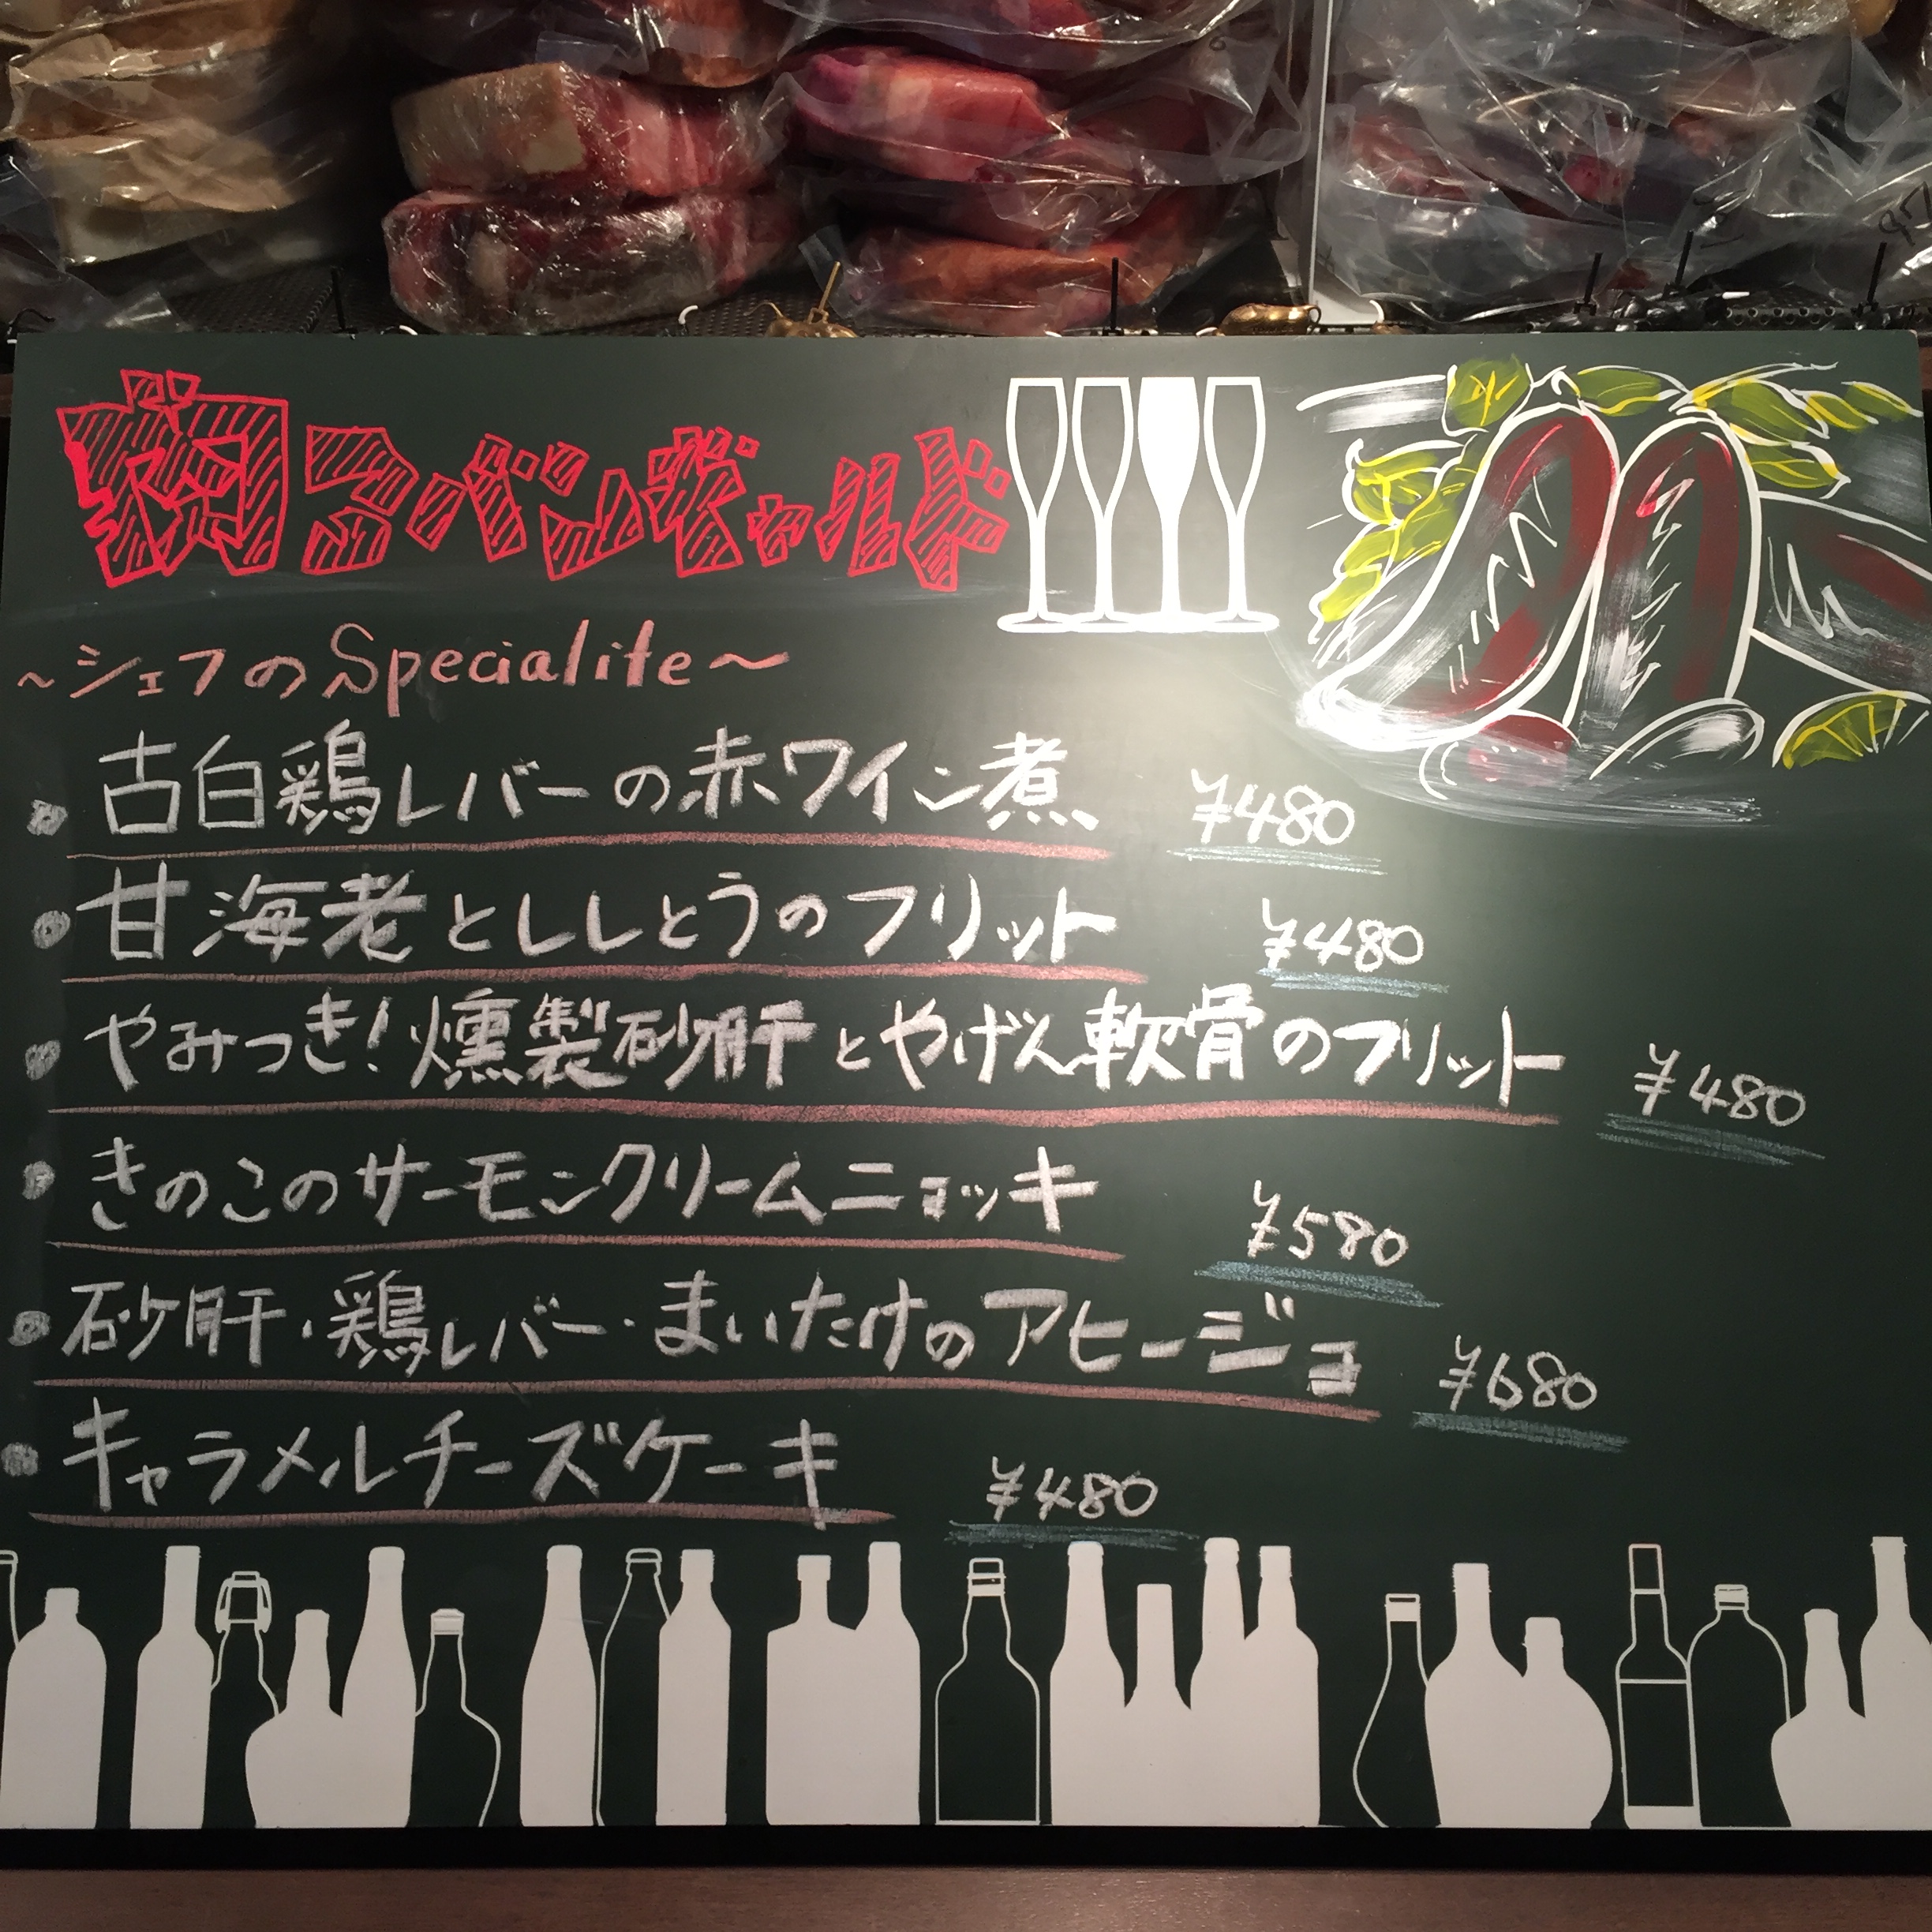 肉アバンギャルド
~シェフのSpecialite~
・古白鶏レバーの赤ワイン煮 ¥480
・甘海老とししとうのフリット ¥480
・やみつき!燻製砂肝とやげん軟骨のフリット ¥480
・きのこのサーモンクリームニョッキ ¥580
・砂肝・鶏レバー・まいたけのアヒージョ ¥680
・キャラメルチーズケーキ ¥480